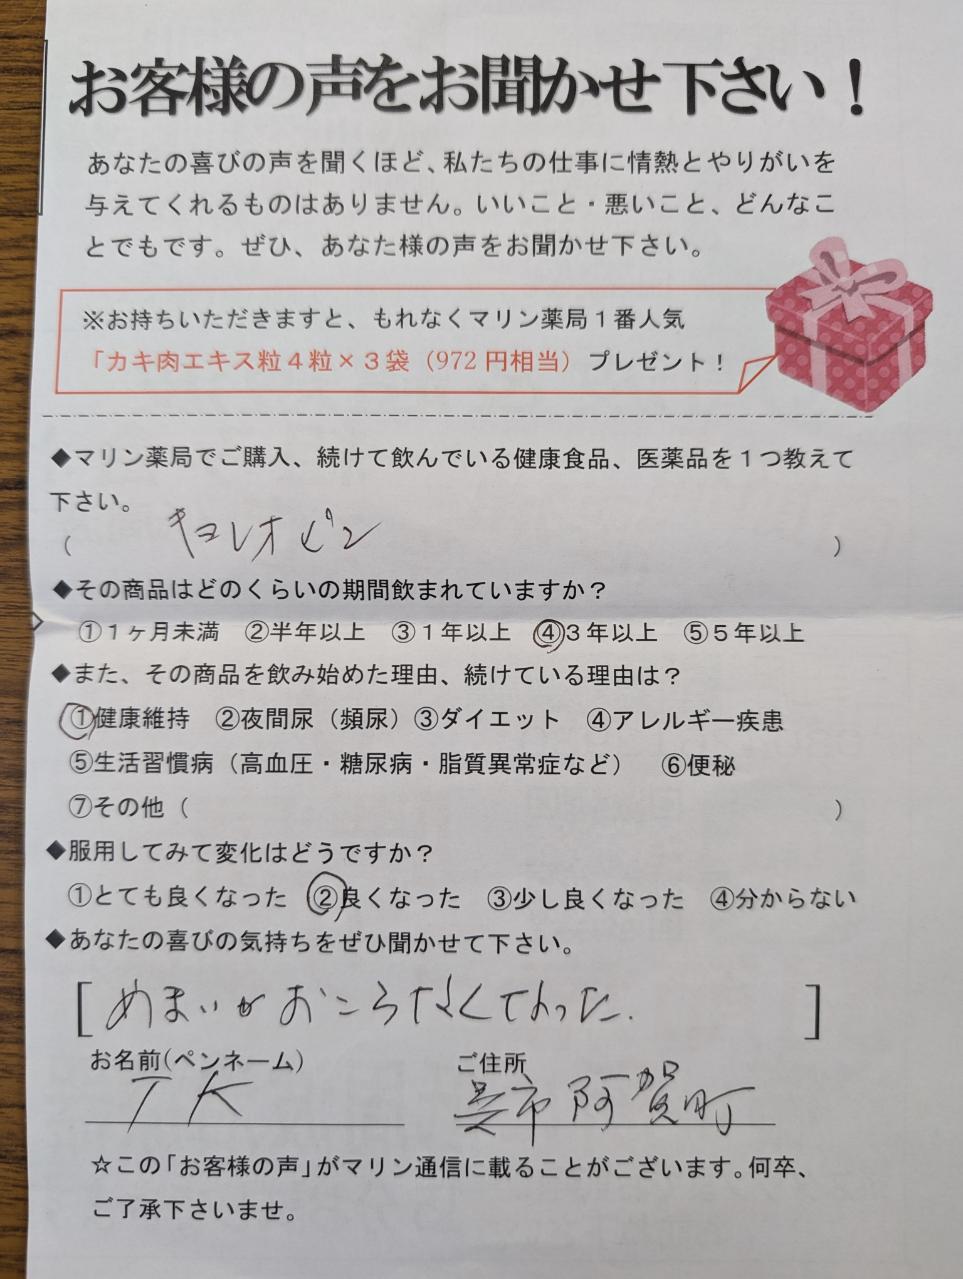 お客様の声をお聞かせ下さい！
あなたの喜びの声を聞くほど、私たちの仕事に情熱とやりがいを
与えてくれるものはありません。いいこと・悪いこと、どんなこ
とでもです。ぜひ、あなた様の声をお聞かせ下さい。
※お持ちいただきますと、もれなくマリン薬局１番人気
「カキ肉エキス粒４粒×３袋（972円相当）プレゼント！
◆マリン薬局でご購入、続けて飲んでいる健康食品、医薬品を１つ教えて
下さい。
（ キヨレオピン ）
◆その商品はどのくらいの期間飲まれていますか？
①１ヶ月未満 ②半年以上 ③１年以上 ④３年以上 ⑤５年以上
◆また、その商品を飲み始めた理由、続けている理由は？
①健康維持 ②夜間尿（頻尿）③ダイエット ④アレルギー疾患
⑤生活習慣病（高血圧・糖尿病・脂質異常症など） ⑥便秘
⑦その他（ ）
◆服用してみて変化はどうですか？
①とても良くなった ②良くなった ③少し良くなった ④分からない
◆あなたの喜びの気持ちをぜひ聞かせて下さい。
[ めまいがおこらなくなった. ]
お名前(ペンネーム) ご住所
T K 呉市阿賀町
☆この「お客様の声」がマリン通信に載ることがございます。何卒、
ご了承下さいませ。